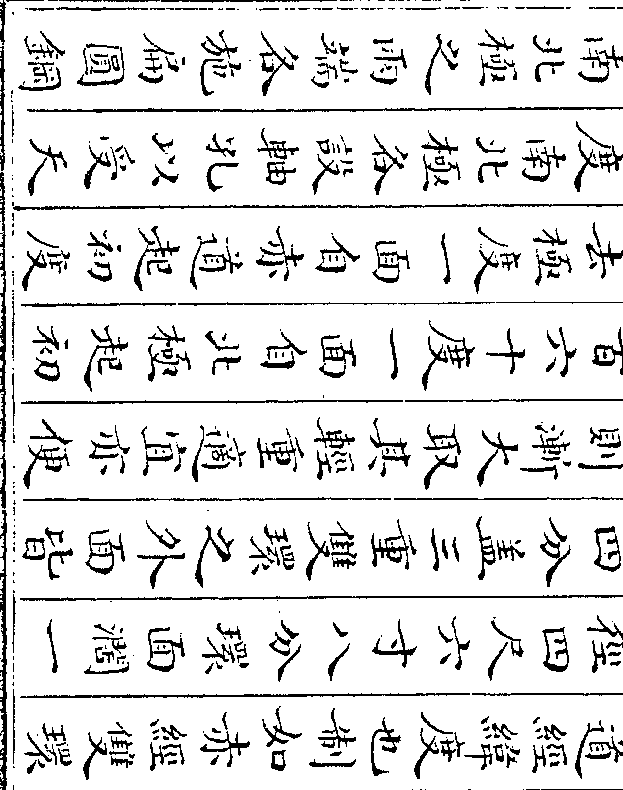 道經緯度也制如赤經雙環
徑四尺六寸八分環面濶一
四分盖三重雙環之外面皆
則漸大取其輕重適宜亦便
百六十度一面自北極起初
去極度一面自赤道起初度
度南北極各設軸孔以受天
南北極之兩端各施扁圓鋼